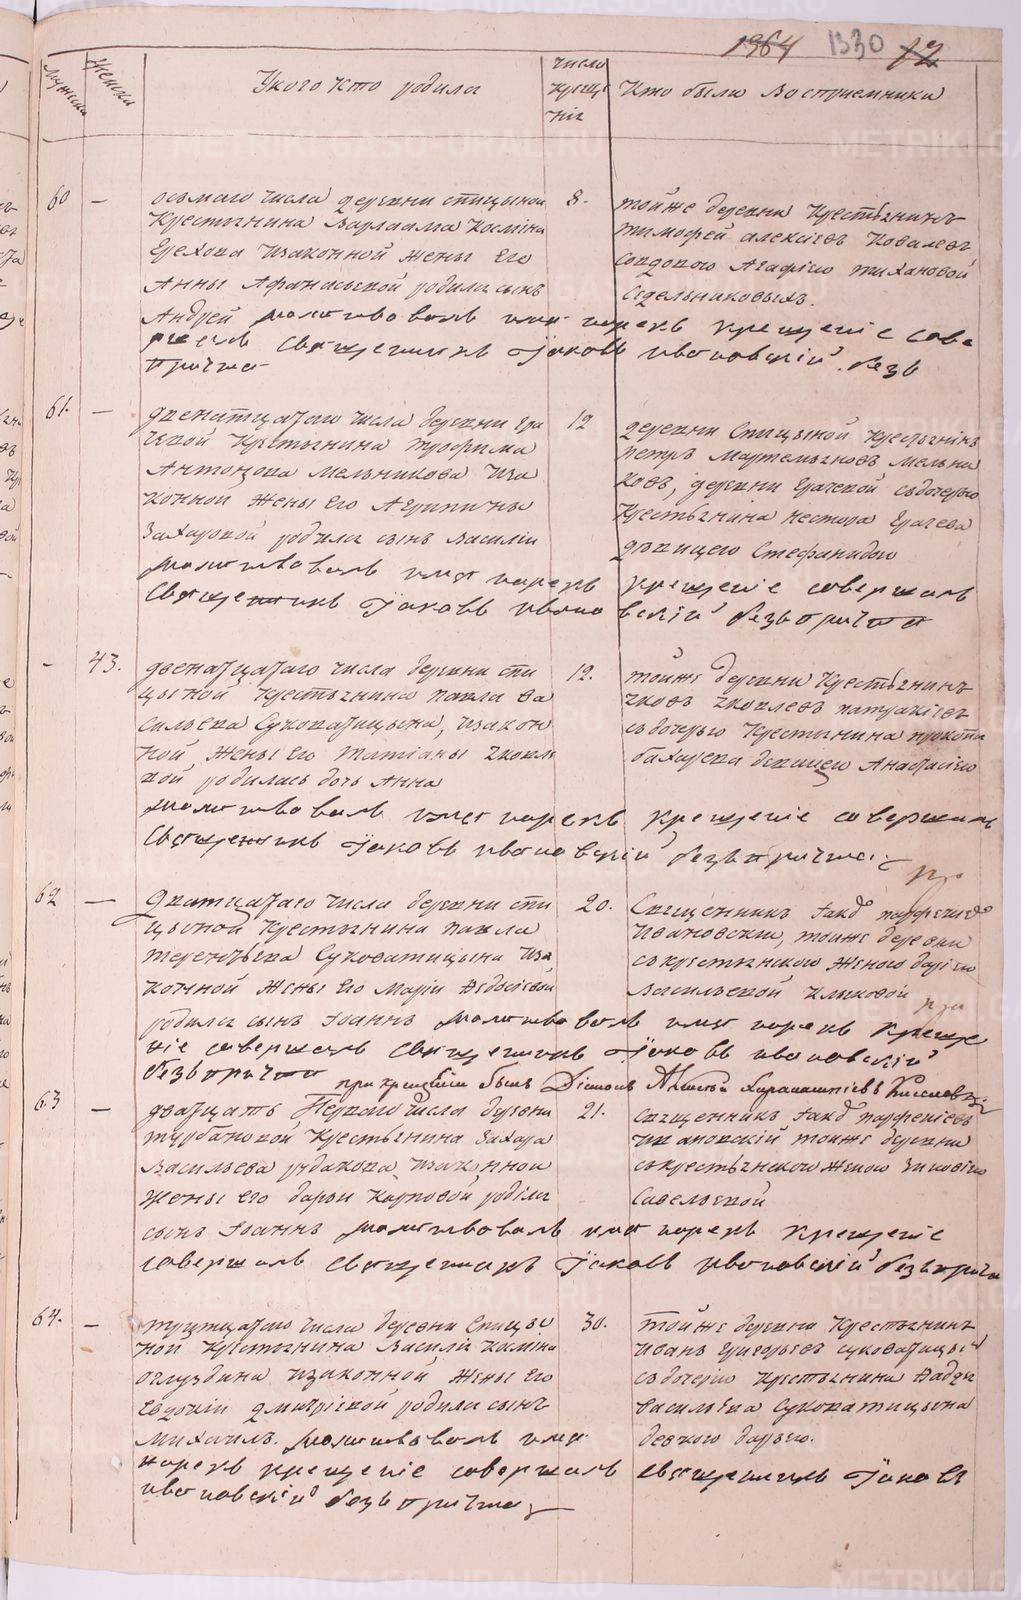 1964 1330 72
Мужеска
Женска
У кого кто родился
Число крещенія
Кто были Восприемники
60 —
осьмаго числа деревни спицыной
Крестьянина Варлаама Космина
Грехова изаконной жены его
Анны Афанасьевой родился сынъ
Андрей молитвовалъ имя нарекъ крещеніе сове
ршалъ Священникъ Іаковъ Ивановскій безъ
причта
8.
тойже деревни Крестьянинъ
тимофей алексіевъ Ковалевъ
Агафіею тихановой
Седельниковыхъ.
61. —
двенатцатаго числа деревни Гра
чевой Крестьянина трофима
Антонова Мельникова иза
конной жены его Агрипины
Захаровой родился сынъ василіи
молитвовалъ имя нарекъ крещеніе совершалъ
Священникъ Іаковъ Ивано вскій безъ причта
12
деревни Спицыной Крестьянинъ
петръ Мартемьяновъ Мельни
ковъ, деревни Грачевой съдочерью
Крестьянина нестора Грачева
девицею Стефанидою
— 43.
двенатцатаго числа деревни спи
цыной Крестьянина павла ва
сильева Суковатицына, изакон
ной жены его татіаны яковле
вой родилась дочь Анна
молитвовалъ имя нарекъ крещеніе совершалъ
Священникъ Іаковъ Ивановскій безъ причта
12.
тойже деревни Крестьянинъ
яковъ яковлевъ патракіевъ
съдочерью Крестьянина прокопа
бахарева девицею Анастасіею
62 —
дватцатаго числа деревни спи
цыной Крестьянина павла
терентьева Суковатицына иза
конной жены его маріи Федосіевой
родился сынъ Іоаннъ молитвовалъ имя нарекъ креще
ніе совершалъ Священникъ Іаковъ Ивановскій
безъ причта при крещеніи былъ Діаконъ Алексей Харалампіевъ Киселевъ
20.
Священникъ Іаковъ парфеніевъ
Ивановскіи, тоиже деревни
съкрестьянскою женою даріею
Васильевой Клыковой
63 —
дватцать Перваго числа деревни
турбановой Крестьянина Захара
Васильева рудакова изаконнои
жены его дарьи Карповой родился
сынъ Іоаннъ молитвовалъ имя нарекъ крещеніе
совершалъ Священникъ Іаковъ Ивановскій безъ причта
21.
Священникъ Іаковъ парфеніевъ
Ивановскій тоиже деревни
съкрестьянскою женою Зиновіею
Савельевой
64. —
тритцатаго числа деревни Спицы
ной Крестьянина Василія Космина
оглуздина изаконной жены его
Евдокіи дмитріевой родился сынъ
Михаилъ. молитвовалъ имя
нарекъ крещеніе совершалъ священникъ Іаковъ
Ивановскій безъ причта
30.
тойже деревни Крестьянинъ
Иванъ Григорьевъ суковатицынъ
съдочерію Крестьянина Фадея
васильева Суковатицына
девкою дарьею.